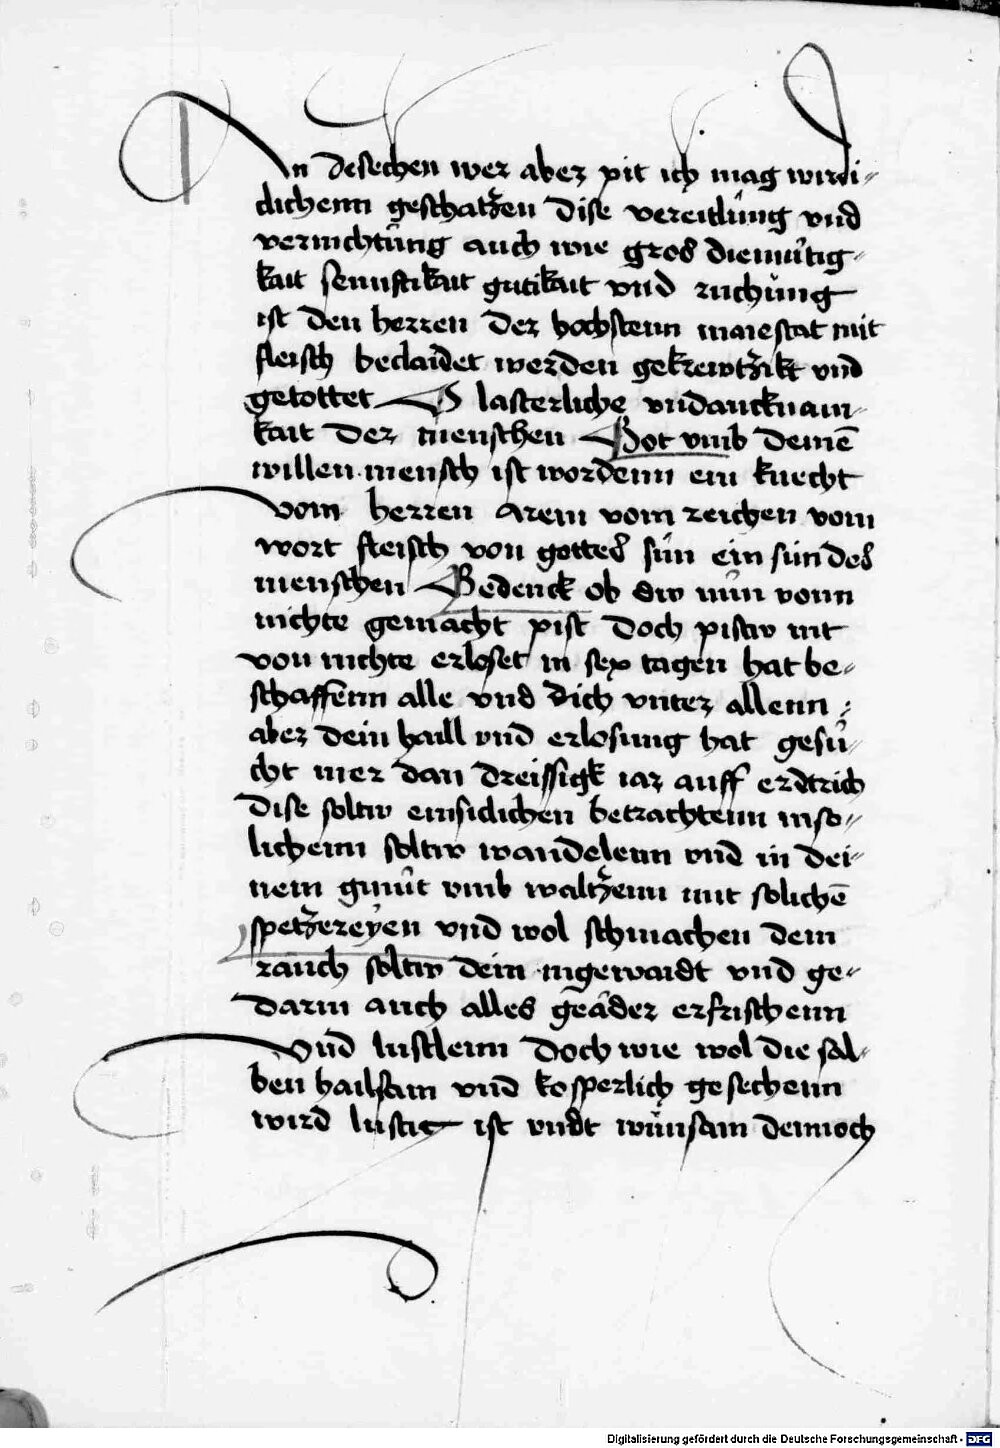 An desechen wer aber pit ich mag wirdi-
clichenn geschatzen dise vereitlung vnd
vernichtung auch wie gros diemutig-
kait senftikait gutikait vnd ruchung
ist den herren der hochstenn maiestat mit
fleisch beclaidet werden gekrewtzikt vnd
getottet O lasterliche vndancknam-
kait der menschen Got vmb deinē
willen mensch ist wordenn ein knecht
vom herren Arem vom reichen vom
wort fleisch von gottes sun ein sun des
menschen Bedenck ob dw nun vonn
nichte gemacht pist doch pistw nit
von nichte erloset in sex tagen hat be-
schaffenn alle vnd dich vnter allenn
aber dein haill vnd erlosung hat gesu-
cht mer dan dreissigk iar auff erdtrich
dise soltw einsidlichen betrachtenn in so-
lichenn soltw wandelenn vnd in dei-
nem gmut vmb waltzenn mit solichē
spetzereyen vnd wol schmachen dem
rauch soltw dein ingewaidt vnd ge-
darm auch alles geäder erfrischenn
vnd lustlenn doch wie wol die sal-
ben hailsam vnd kosperlich gesechenn
wird lustig ist vndt wunsam dennoch
Digitalisierung gefördert durch die Deutsche Forschungsgemeinschaft - DFG